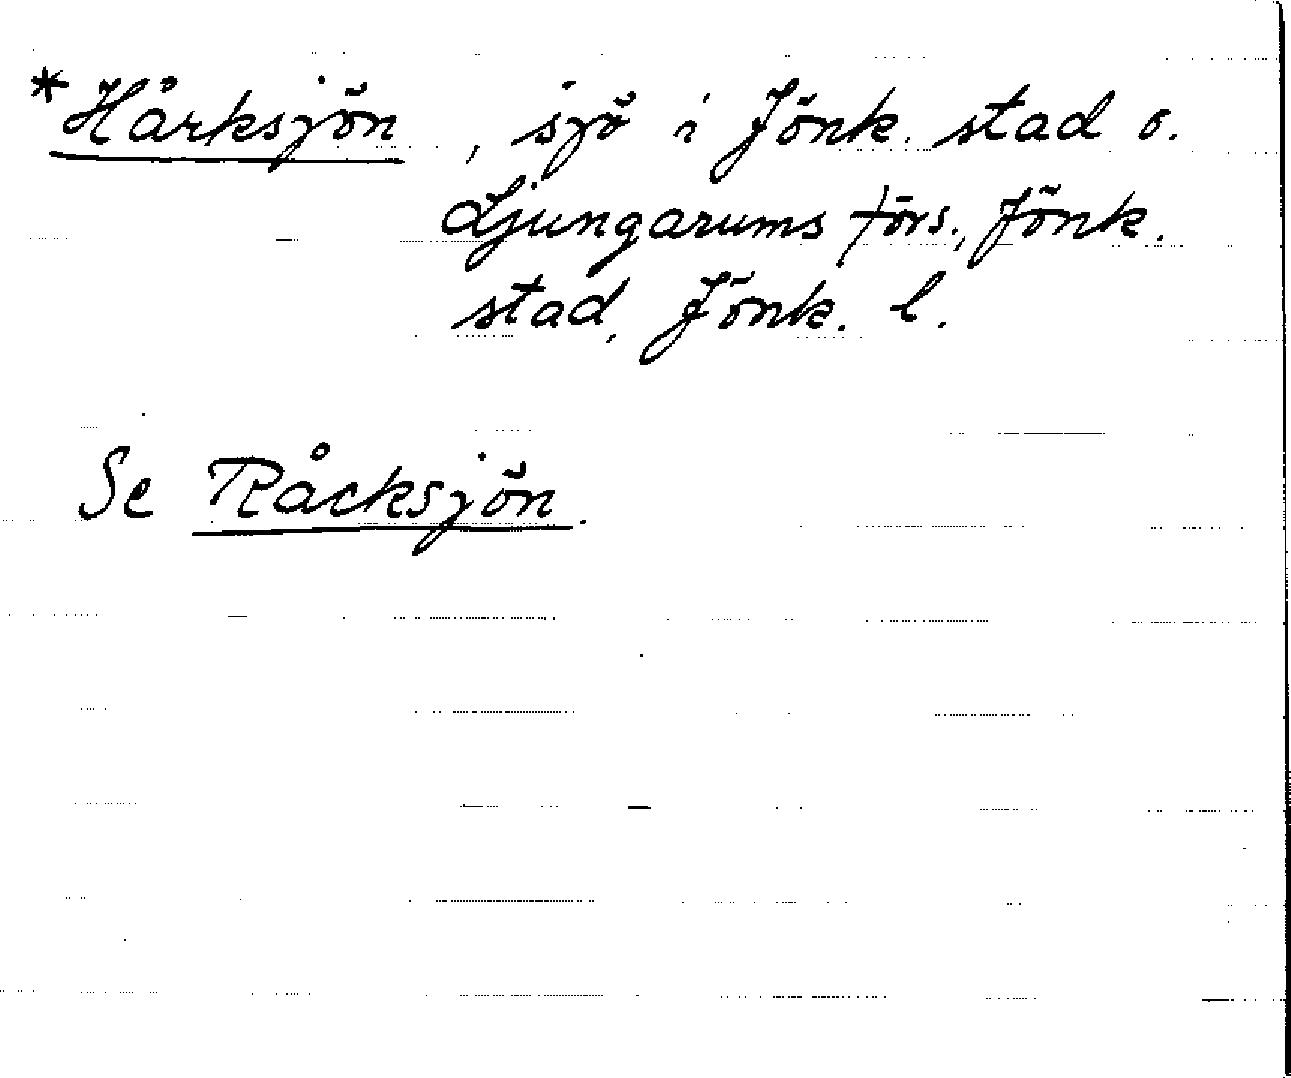 *Hårksjön, sjö i Jönk. stad o.
Ljungarums förs., Jönk.
stad, Jönk. l.
Se Råcksjön.